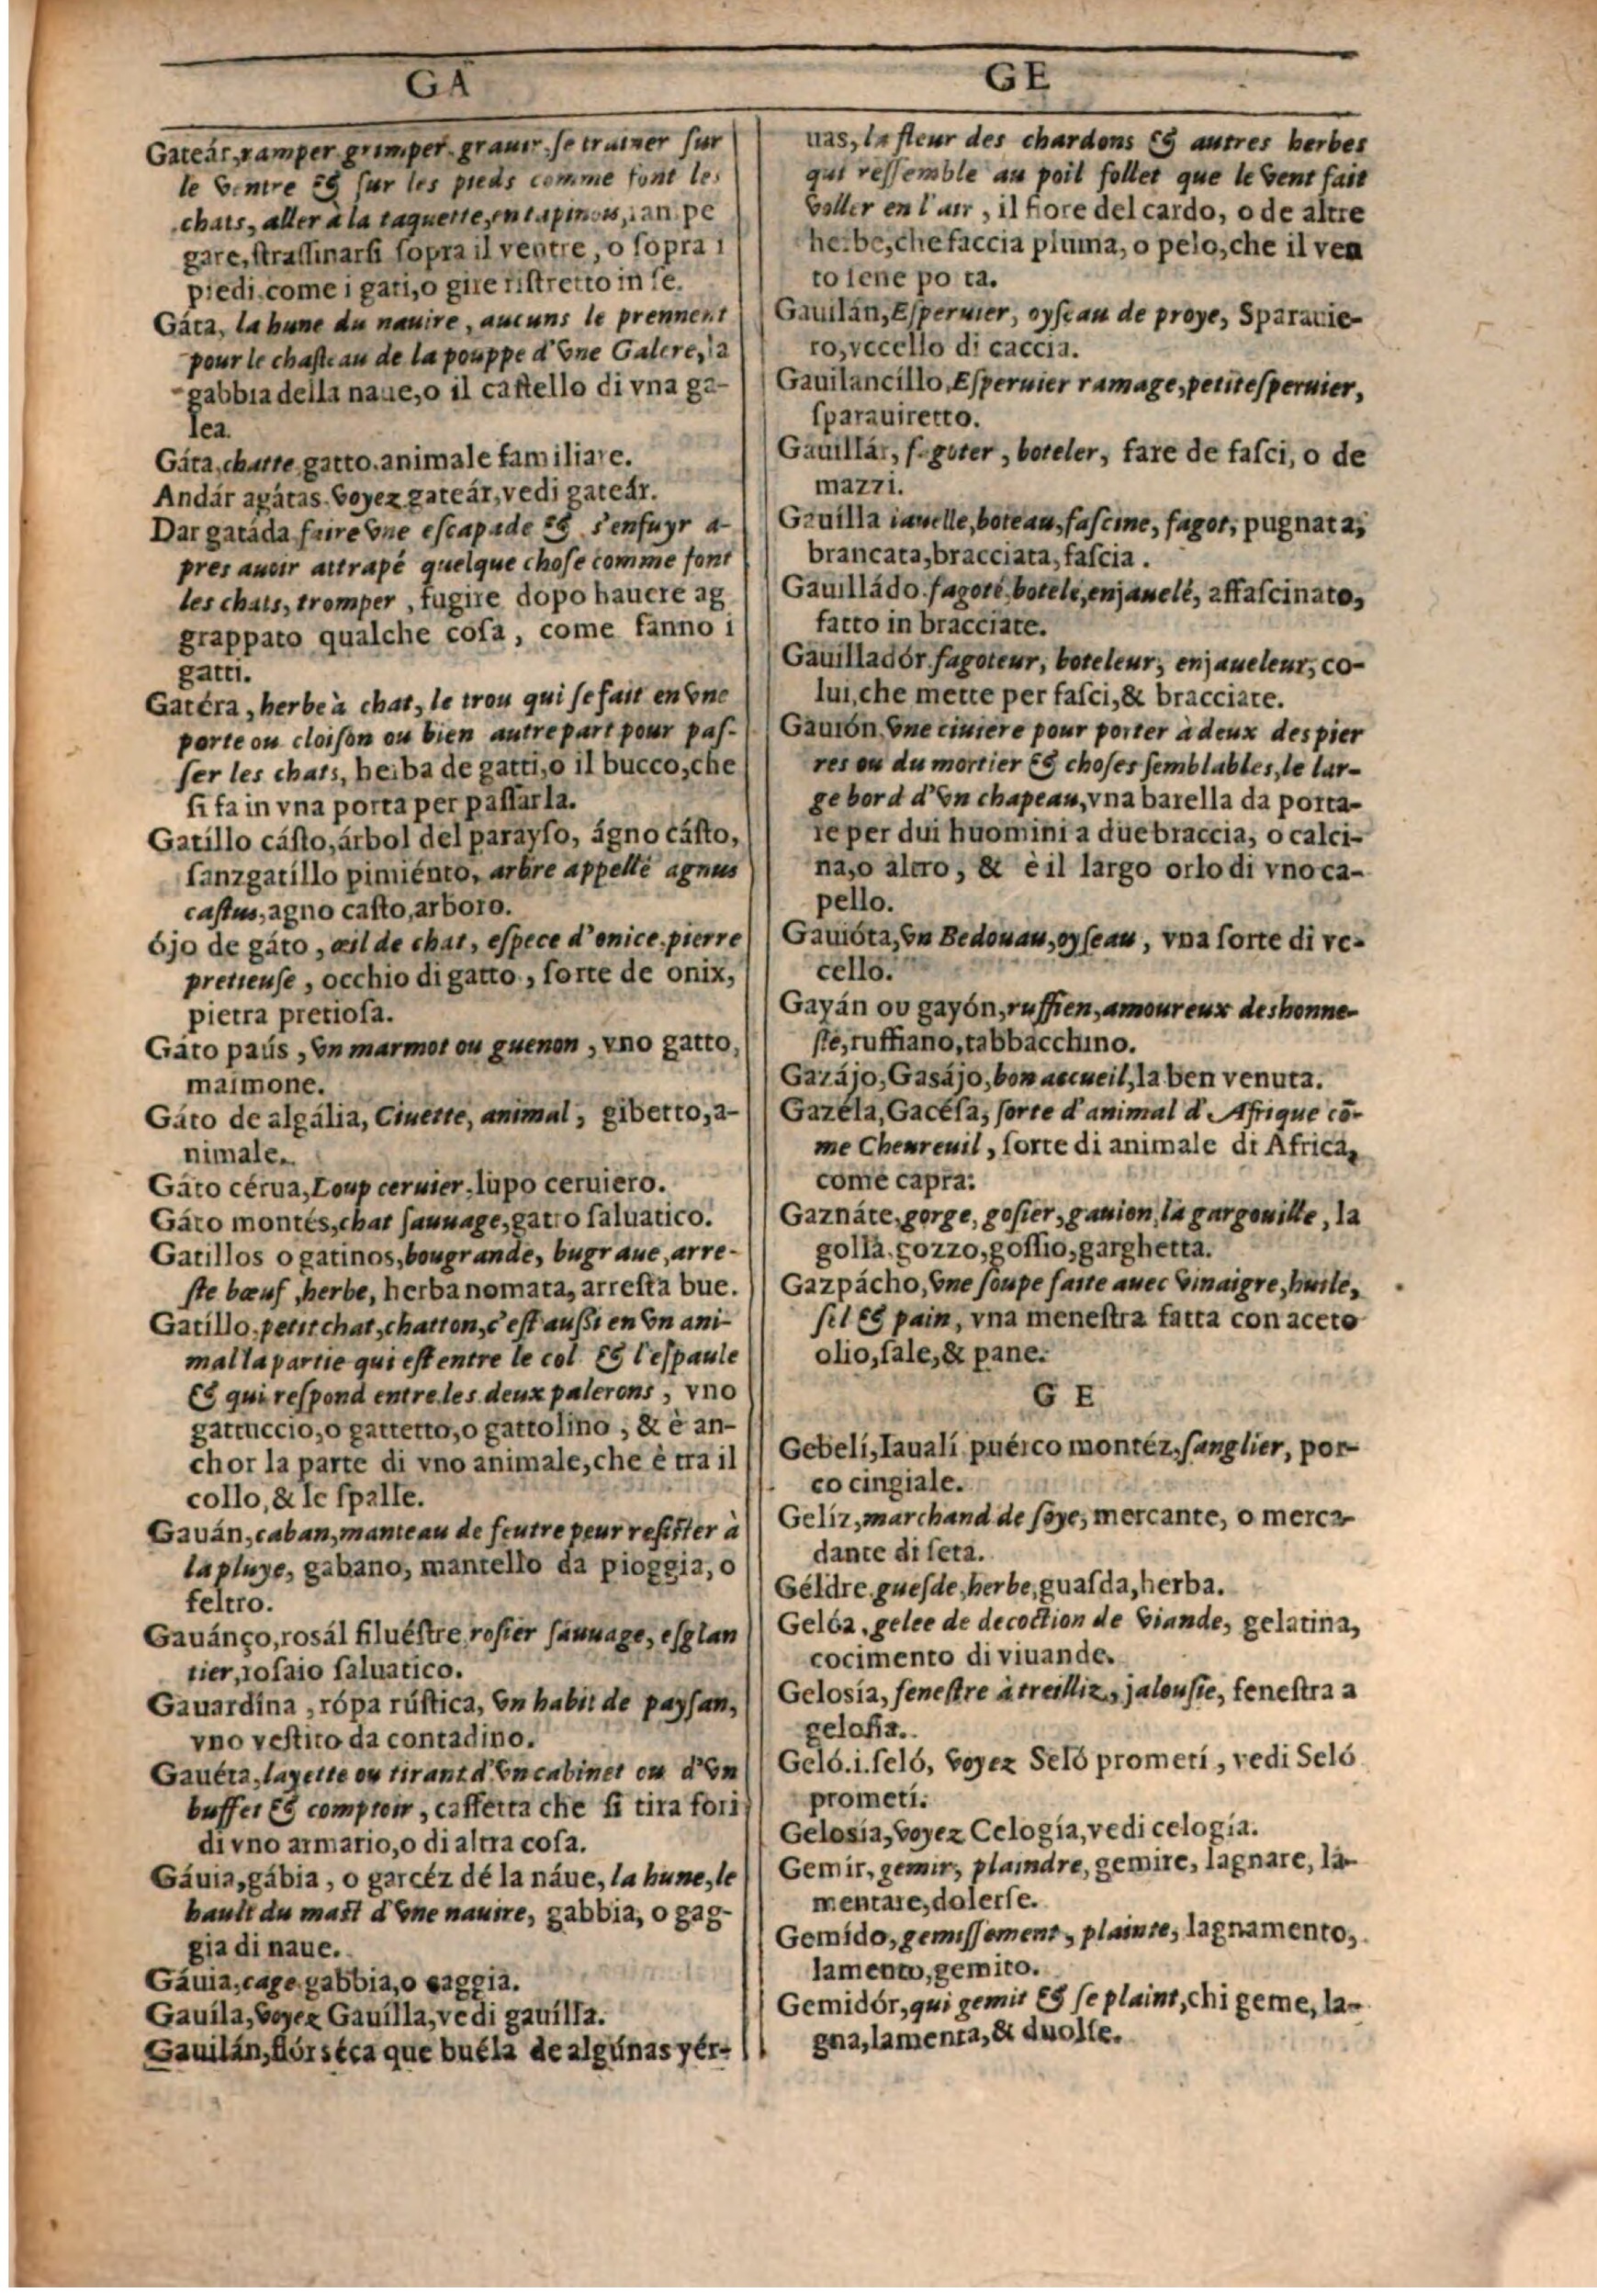 GA
Gateár, ramper, grimper, grauir, se trainer sur
le ventre & sur les pieds comme font les
chats, aller à la taquette, en tapinois, ram pe
gare, straſſinarſi ſopra il ventre, o ſopra i
piedi, come i gati, o gire riſtretto in ſe.
Gáta, la hune du nauire, aucuns le prennent
pour le chaſteau de la pouppe d'vne Galere, la
gabbia della naue, o il caſtello di vna ga-
lea.
Gáta, chatte, gatto, animale familiare.
Andár agátas. voyez gateár, vedi gateár.
Dar gatáda, faire vne eſcapade & s'enfuyr a-
pres auoir attrapé quelque choſe comme font
les chats, tromper, fugire dopo hauere ag
grappato qualche coſa, come fanno i
gatti.
Gatéra, herbe à chat, le trou qui ſe fait en vne
porte ou cloiſon ou bien autre part pour paſ-
ſer les chats, herba de gatti, o il bucco, che
ſi fa in vna porta per paſſarla.
Gatíllo cáſto, árbol del parayſo, ágno cáſto,
ſanzgatíllo pimiénto, arbre appellé agnus
caſtus, agno caſto, arboro.
ójo de gáto, œil de chat, eſpece d'onice, pierre
pretieuſe, occhio di gatto, ſorte de onix,
pietra pretioſa.
Gáto paús, vn marmot ou guenon, vno gatto,
maimone.
Gáto de algália, Ciuette, animal, gibetto, a-
nimale.
Gáto cérua, Loup ceruier, lupo ceruiero.
Gáto montés, chat ſauuage, gatto ſaluatico.
Gatillos o gatinos, bougrande, bugraue, arre-
ſte bœuf, herbe, herba nomata, arreſta bue.
Gatíllo, petit chat, chatton, c'eſt auſſi en vn ani-
mal la partie qui eſt entre le col & l'eſpaule
& qui reſpond entre les deux palerons, vno
gattuccio, o gattetto, o gattolino, & è an-
chor la parte di vno animale, che è tra il
collo, & le ſpalle.
Gauán, caban, manteau de feutre pour reſiſter à
la pluye, gabano, mantello da pioggia, o
feltro.
Gauánço, rosál ſiluéſtre, roſier ſauuage, eſglan
tier, roſaio ſaluatico.
Gauardína, rópa rúſtica, vn habit de payſan,
vno veſtito da contadino.
Gauéta, layette ou tirant d'vn cabinet ou d'vn
buffet & comptoir, caſſetta che ſi tira fori
di vno armario, o di altra coſa.
Gáuia, gábia, o garcéz dé la náue, la hune, le
hault du maſt d'vne nauire, gabbia, o gag-
gia di naue.
Gáuia, cage, gabbia, o gaggia.
Gauíla, voyez Gauílla, vedi gauílla.
Gauilán, flór séca que buéla de algúnas yér-
GE
uas, la fleur des chardons & autres herbes
qui reſſemble au poil follet que le vent fait
voller en l'air, il fiore del cardo, o de altre
herbe, che faccia piuma, o pelo, che il ven
to ſene porta.
Gauilán, Eſperuier, oyſeau de proye, Sparauie-
ro, vccello di caccia.
Gauilancíllo, Eſperuier ramage, petit eſperuier,
ſparauiretto.
Gauillár, fagoter, boteler, fare de faſci, o de
mazzi.
Gauílla iauelle, boteau, faſcine, fagot, pugnata,
brancata, bracciata, faſcia.
Gauilládo. fagoté, botelé, enjauelé, affaſcinato,
fatto in bracciate.
Gauilladór fagoteur, boteleur, enjaueleur, co-
lui, che mette per faſci, & bracciate.
Gauión, vne ciuiere pour porter à deux des pier
res ou du mortier & choſes ſemblables, le lar-
ge bord d'vn chapeau, vna barella da porta-
re per dui huomini a due braccia, o calci-
na, o altro, & è il largo orlo di vno ca-
pello.
Gauióta, vn Bedouau, oyſeau, vna ſorte di vc-
cello.
Gayán ou gayón, ruffien, amoureux deshonne-
ſte, ruffiano, tabbacchino.
Gazájo, Gasájo, bon accueil, la ben venuta.
Gazéla, Gacéſa, ſorte d'animal d'Afrique cō-
me Cheureuil, ſorte di animale di Africa,
come capra:
Gaznáte, gorge, goſier, gauion, la gargouille, la
golla, gozzo, goſſio, garghetta.
Gazpácho, vne ſoupe faite auec vinaigre, huile,
ſel & pain, vna meneſtra fatta con aceto
olio, ſale, & pane.
G E
Gebelí, Iaualí puérco montéz, ſanglier, por-
co cingiale.
Gelíz, marchand de ſoye, mercante, o merca-
dante di ſeta.
Géldre guesde, herbe, guaſda, herba.
Geléa, gelee de decoction de viande, gelatina,
cocimento di viuande.
Gelosía, feneſtre à treilliz, jalouſie, feneſtra a
geloſia.
Geló. i. ſeló, voyez Seló prometí, vedi Seló
prometí.
Gelosía, voyez Celogía, vedi celogía.
Gemír, gemir, plaindre, gemire, lagnare, la-
mentare, dolerſe.
Gemído, gemiſſement, plainte, lagnamento,
lamento, gemito.
Gemidór, qui gemit & ſe plaint, chi geme, la-
gna, lamenta, & duolſe.